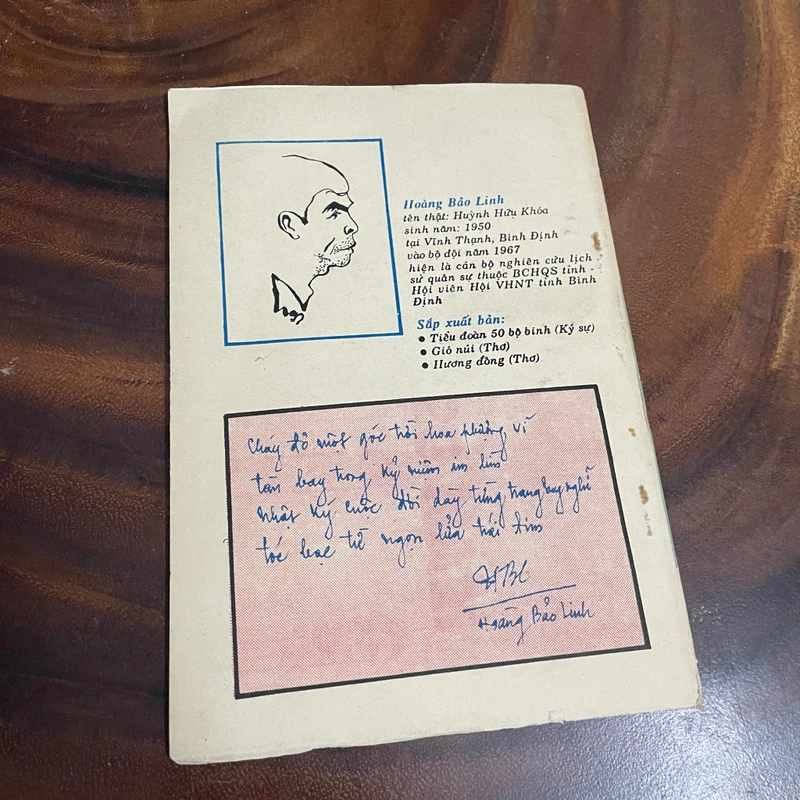 Hoàng Bảo Linh
tên thật: Huỳnh Hữu Khóa
sinh năm: 1950
tại Vĩnh Thạnh, Bình Định
vào bộ đội năm 1967
hiện là cán bộ nghiên cứu lịch
sử quân sự thuộc BCHQS tỉnh -
Hội viên Hội VHNT tỉnh Bình
Định
Sắp xuất bản:
● Tiểu đoàn 50 bộ binh (Ký sự)
● Gió núi (Thơ)
● Hương đồng (Thơ)
Cháy đỏ một góc trời hoa phượng vĩ
tán bay trong kỷ niệm im lìm
Nhật ký cuộc đời dày từng trang suy nghĩ
tóc bạc từ ngọn lửa trái tim
HBL
Hoàng Bảo Linh